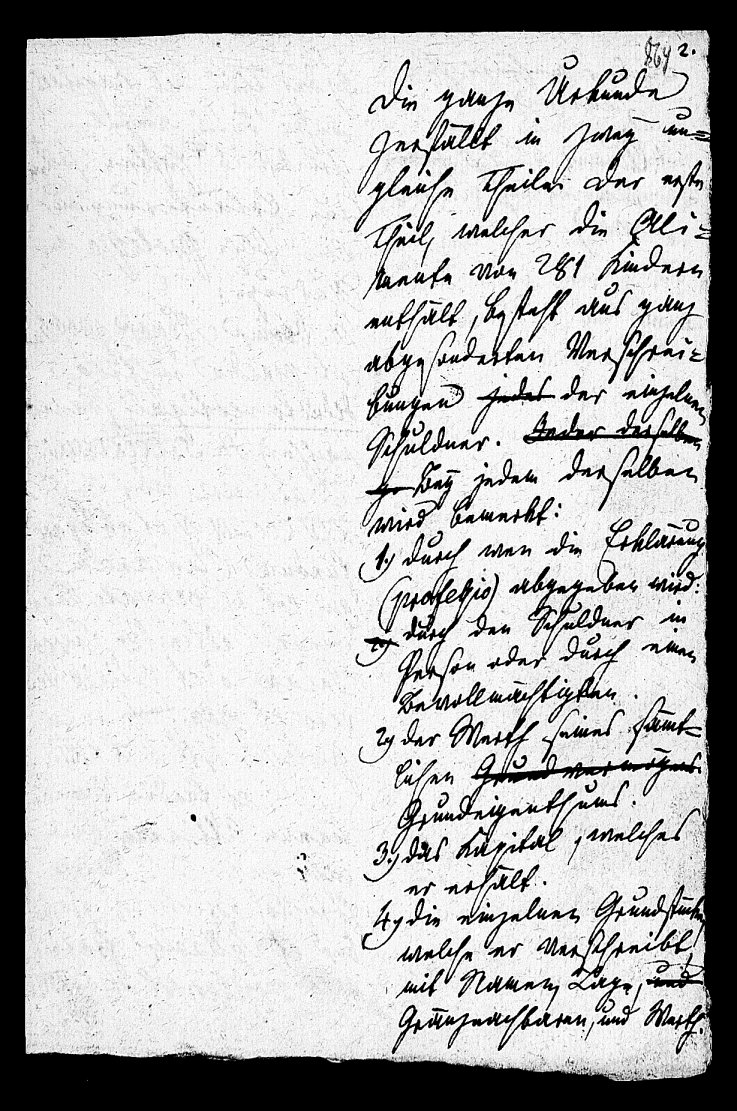 864 2.
Die ganze Urkunde
zerfällt in zwey un=
gleiche Theile. Der erste
Theil, welcher die Ali=
mente von 281 Kindern
enthält, besteht aus ganz
abgesonderten Verschrei=
bungen jedes der einzelnen
Schuldner. Jeder derselben
Bey jedem derselben
wird bemerkt:
1.) durch wen die Erklärung
(professio) abgegeben wird:
durch den Schuldner in
Person oder durch einen
Bevollmächtigten.
2.) der Werth seines sämt=
lichen Grundvermögens
Grundeigenthums.
3.) das Kapital, welches
er erhält.
4.) die einzelnen Grundstücke,
welche er verschreibt,
mit Namen, Lage, und
Gränznachbaren, und Werth.